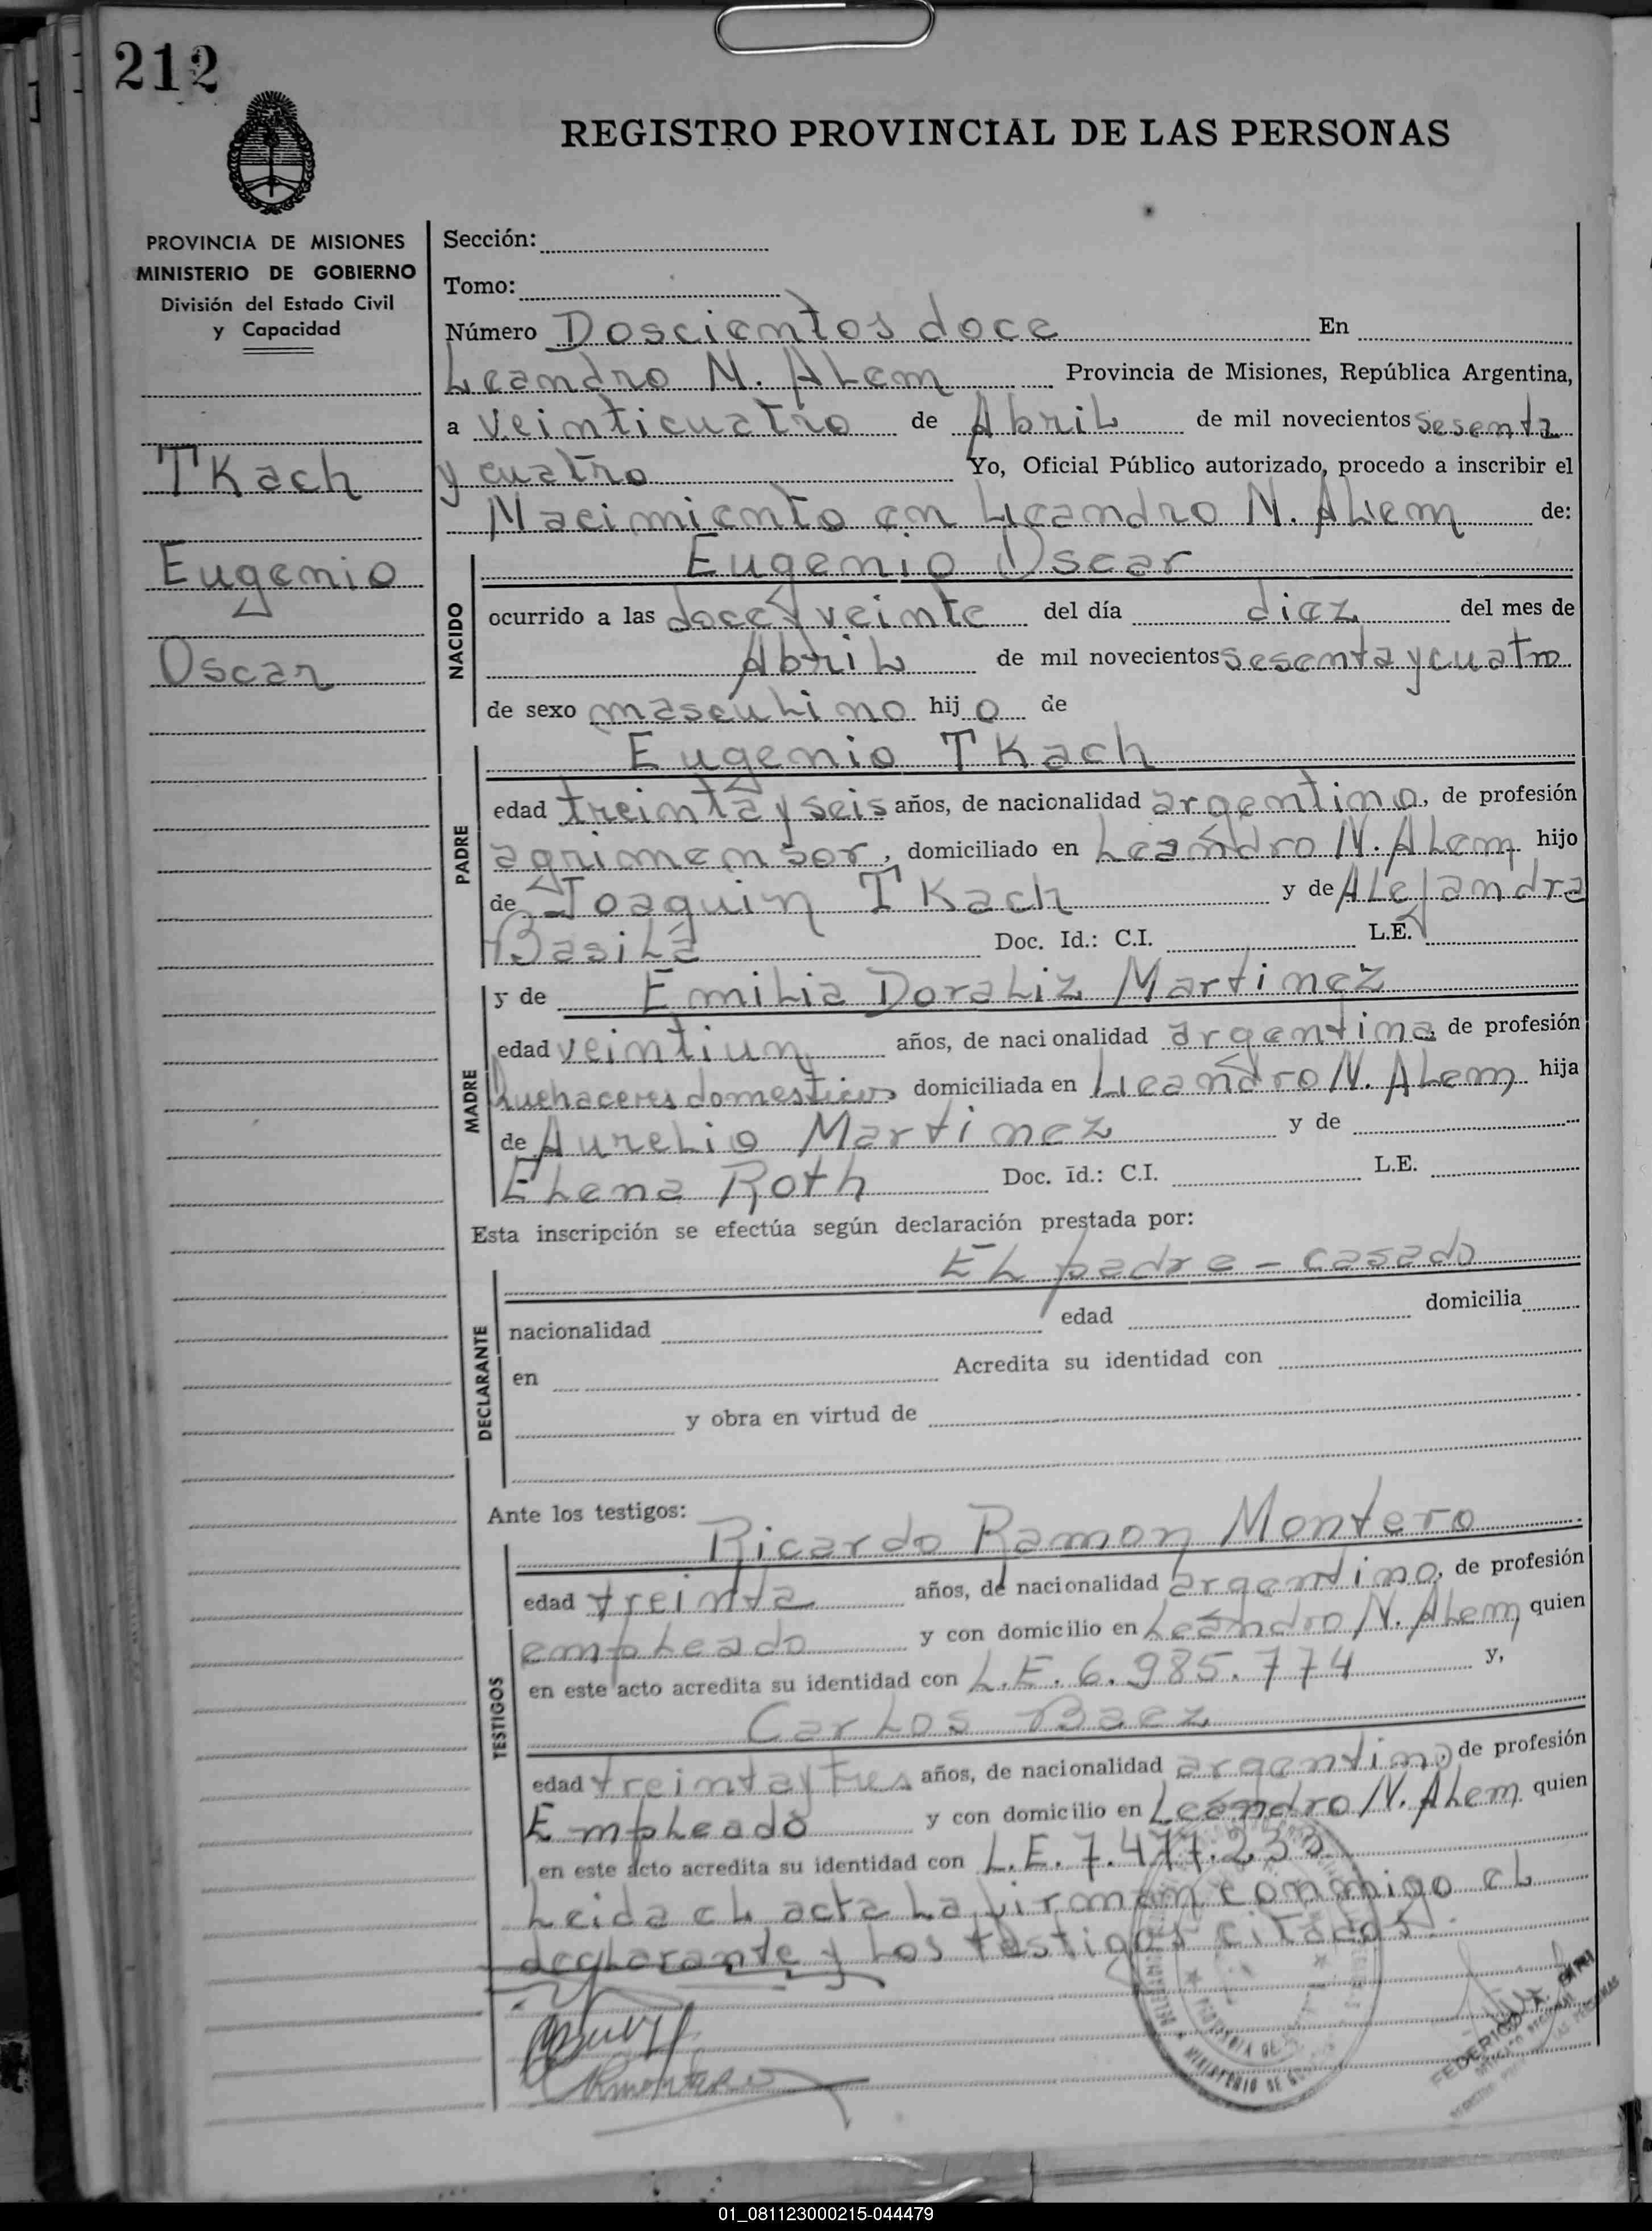 212
REGISTRO PROVINCIAL DE LAS PERSONAS
PROVINCIA DE MISIONES
MINISTERIO DE GOBIERNO
División del Estado Civil
y Capacidad
TKach
Eugenio
Oscar
Sección:
Tomo:
Número Doscientos doce En
Leandro N. ALem Provincia de Misiones, República Argentina,
a veinticuatro de AbriL de mil novecientos sesenta
y cuatro Yo, Oficial Público autorizado, procedo a inscribir el
Nacimiento en Leandro N. ALem de:
NACIDO
Eugenio Oscar
ocurrido a las doce y veinte del día diez del mes de
AbriL de mil novecientos sesenta y cuatro
de sexo mascuLino hijo de
PADRE
Eugenio TKach
edad treinta y seis años, de nacionalidad argentino, de profesión
agrimensor, domiciliado en Leandro N. ALem hijo
de Joaquin TKach y de ALejandra
BasiLa Doc. Id.: C.I. L.E.
MADRE
y de EmiLia DoraLiz Martinez
edad veintiun años, de nacionalidad argentina, de profesión
quehaceres domesticos domiciliada en Leandro N. ALem hija
de AureLio Martinez y de
ELena Roth Doc. Id.: C.I. L.E.
Esta inscripción se efectúa según declaración prestada por:
DECLARANTE
EL padre - casado
nacionalidad edad domicilia
en Acredita su identidad con
y obra en virtud de
Ante los testigos:
TESTIGOS
Ricardo Ramon Montero
edad treinta años, de nacionalidad argentino, de profesión
empLeado y con domicilio en Leandro N. ALem quien
en este acto acredita su identidad con L.E. 6.985.774 y,
CarLos Baez
edad treinta y tres años, de nacionalidad argentino, de profesión
EmpLeado y con domicilio en Leandro N. ALem quien
en este acto acredita su identidad con L.E. 7.477.233
Leida eL acta La firman conmigo eL
decLarante y Los testigos citados.
MINISTERIO DE
FEDERICO
01_081123000215-044479